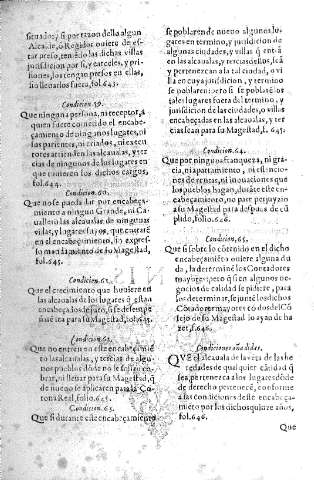 ser dos, y si por razon dello algun
Alcalde, ò Regidor ouiere de es-
tar preso, teniendo las dichas villas
jurisdicion por si, y carceles, y pri-
siones, los tengan presos en ellas,
sin lleuarlos fuera, fol.645.
Condicion 59.
Que ninguna persona, ni receptor, à
quien fuere cometido el encabeça-
çamiento de ningunos lugares, ni
sus parientes, ni criados, ni
tores arrienden las alcaualas, y ter-
cias de ningunos de los lugares en
que tuuieren los dichos cargos,
fol.644.
Condicion 60.
Que no se pueda dar por encabeça-
miento a ningun Grande, ni Ca-
uallero las alcaualas de ningunas
villas, y lugares suyos, que entraré
en el encabeçamiento, sin expres-
so mandamiento de su Magestad,
fol.645.
Condicion 61.
Que el crecimiento que huuiere en
las alcaualas de los lugares q̃ están
encabeçados de juro, si se desempe
ñare sea para su Magestad, fol.645.
Condicion 62.
Que no entren en este encabeçamié
to las alcaualas, y tercias de algu-
nos pueblos dõde no se suelen co-
brar, ni lleuar para su Magestad, q̃
de nueuo se aplicaren para la Co-
rona Real, folio.645.
Condicion 63.
Que si durante este encabeçamiento
se poblaren de nueuo algunos lu-
gares en termino, y jurisdicion de
algunas ciudades, y villas q̃ entrá
en las alcaualas, y tercias dellos, seã
y pertenezcan a la tal ciudad, o vi
lla en cuyo termino, y jurisdicion
se poblaren: pero si se poblaren los
tales lugares fuera del termino, y
jurisdicion de las ciudades, o villas
encabeçadas en las alcaualas, y ter
cias sean para su Magestad, f.645.
Condicion. 64.
Que por ninguna franqueza, ni gra-
cia, ni apartamiento, ni
de rentas, ni inouaciones que
los pueblos hagan, duráte este en-
cabeçamiento, no pare perjuyzio
a su Magestad para despues de cũ
plido, folio.646.
Condicion, 65.
Que si sobre lo contenido en el dicho
encabeçamiéto ouiere alguna du
da, la determiné los Contadores
mayores, pero q̃ si en algunos ne-
gocios de calidad se pidiere, para
los determinar, se jun té los dichos
Côtadores mayores cõ dos del Cõ
sejo de su Magestad lo ayan de ha
zer, f.646.
Condiciones añadidas.
QVE el alcauala de la vẽta de las he
redades de qual quier calidad q̃
sea, pertenezca a los lugares dõde
de derecho pertenece, conforme
a las condiciones deste encabeça-
miéto por los dichos quinze años,
fol.646.
Que